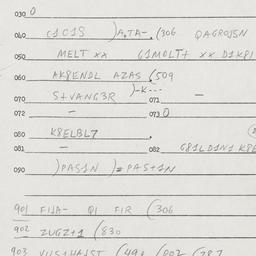 030 0
040 C1C1S )A,TA-. (306 QAGROJSN
050 MELT xx G1MOLT+ xx D1K8I
060 AK8ENDL AZAS (509
)-K---
070 S+VANG3R 071 -
072 - 073 0
080 K8ELBL7
081 - 082 G81LD1N1 K8E
090 )PAS1N )=PAS+1N
901 FIJA- QI FIR (306
902 ZUGZ+1 (830
903